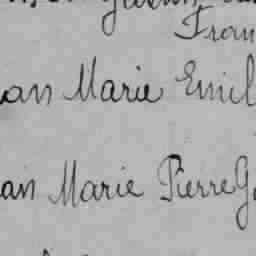 Fran
an Marie Emil
an Marie Pierre G